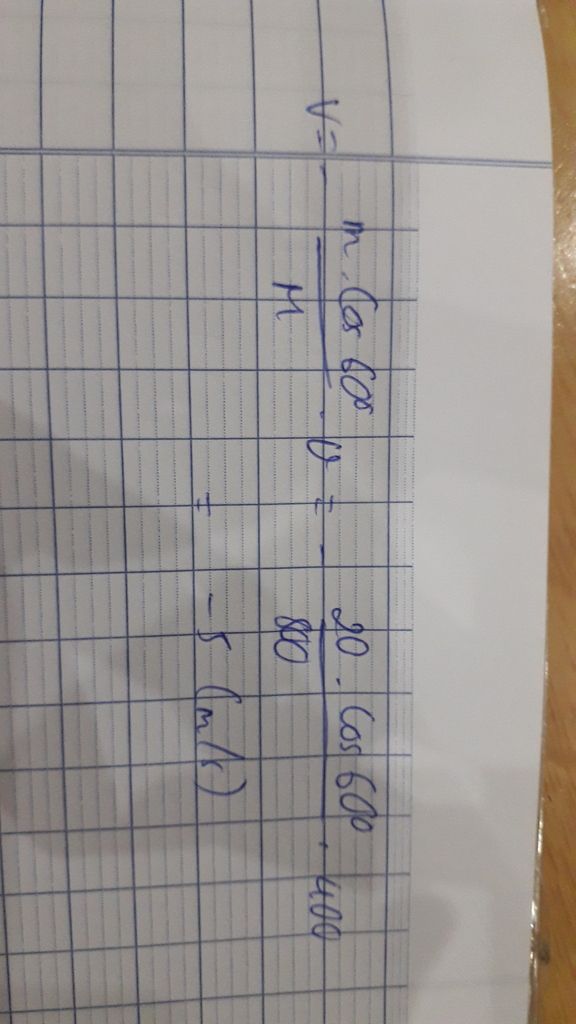 V = - m . Cos 60° / M . v = - 20 . Cos 60° / 800 . 400
= - 5 (m/s)